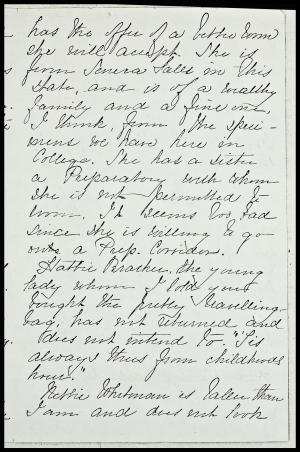 has the offer of a better room
she will accept. She is
from Seneca Falls in this
State, and is of a wealthy
family and a fine one
I think, from the speci-
mens we have here in
College. She has a sister
a Preparatory with whom
she is not permitted to
room. It seems too bad
since she is willing to go
onto a Prep. Corridor.
Hattie, the young
lady whom I told you
bought the pretty travelling-
bag, has not returned and
does not intend to. "'Tis
always thus from childhoods
hour."
Nettie Whitman is taller than
I am and does not look